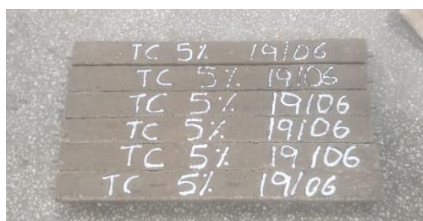 TC 5% - 19/06
TC 5% 19/06
TC 5% 19/06
TC 5% 19/06
TC 5% 19/06
TC 5% - 19/06